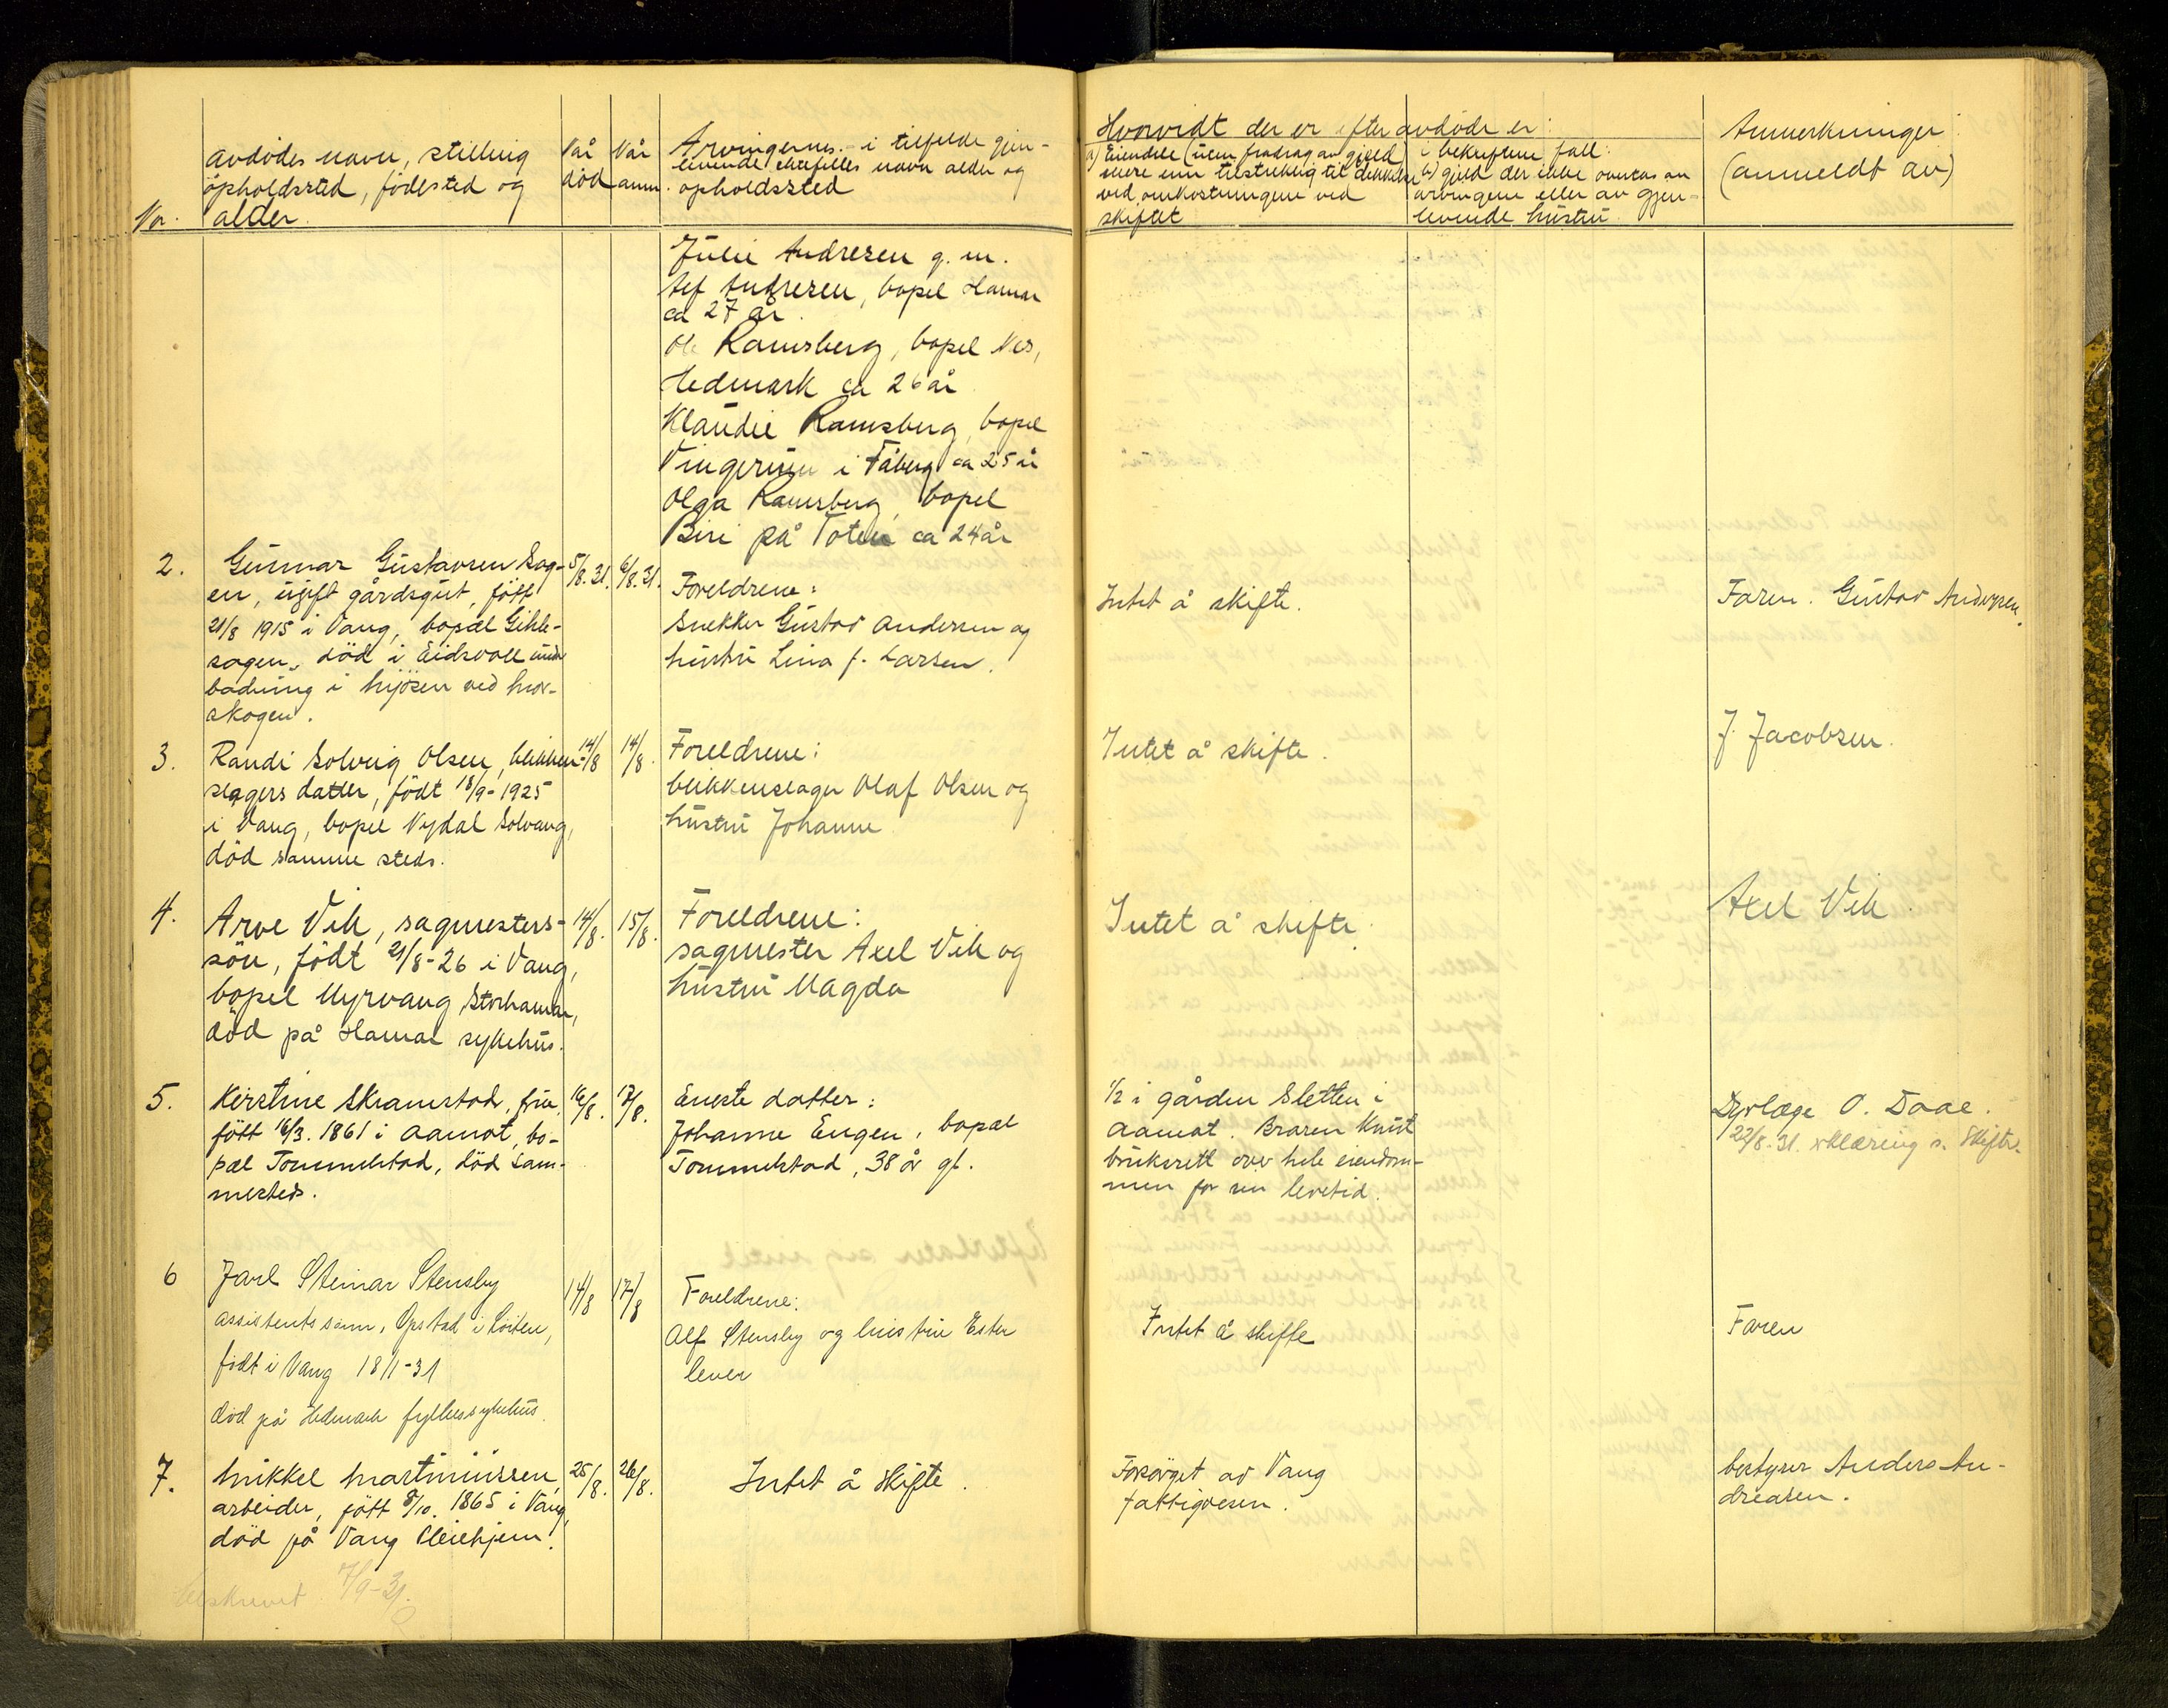 Avdödes navn, stilling
opholdssted, fødested og
alder.
Nr.
Når
död
Når
anm.
Arvingernes - i tilfelde gjen-
levende ektefelles navn alder og
opholdssted
Hvorvidt der er efter avdöde er:
a) Eiendele (uten fradrag av gjeld)
mere enn tilstrekkelig til dekkelse
ved omkostningene ved
skiftet
i bekreftende fall:
b) gjeld der ikke overtas av
arvingene eller av gjen-
levende hustru
Anmerkninger
(anmeldt av)
Julie Andresen g. m.
Alf Andresen, bopel Hamar
ca 27 år.
Ole Ramsberg, bopel Nes,
Hedmark ca 26 år
Klaudie Ramsberg, bopel
i Fåberg ca 25 år
Olga Ramsberg, bopel
Biri på Toten ca 24 år
2.
Gunnar Gustavsen Sag-
en, ugift gårdsgut, fött
21/8 1915 i Vang, bopæl Gihle-
sagen, död i Eidsvoll under
badning i Mjösen ved Mor-
skogen.
5/8.31.
6/8.31.
Foreldrene:
Snekker Gustav Andersen og
hustru Lina f. Larsen.
Intet å skifte.
Faren. Gustav Andersen.
3.
Randi Solveig Olsen, blikken-
slagers datter, födt 18/9-1925
i Vang, bopel Nydal Solvang,
död samme steds.
14/8
14/8.
Foreldrene:
blikkenslager Olaf Olsen og
hustru Johanne
Intet å skifte.
J. Jacobsen.
4.
Arve Vik, sagmesters-
sön, födt 21/8-26 i Vang,
bopel Myrvang Storhamar,
död på Hamar sykehus.
14/8.
15/8.
Foreldrene:
sagmester Axel Vik og
hustru Magda
Intet å skifte.
Axel Vik.
5.
Kirstine Skramstad, frue,
fött 16/3. 1861 i Aamot, bo-
pæl Tommelstad, död sam-
mesteds.
16/8.
17/8.
Eneste datter:
Johanne Engen, bopæl
Tommelstad, 38 år gl.
1/2 i gården Sletten i
Aamot. Broren Knut
bruksrett over hele eiendom-
men for sin levetid.
Dyrlæge O. Daae.
22/8.31. erklæring s. Skifter.
6
Jarl Steinar Stensby
assistents sønn, Opstad i Löiten,
födt i Vang 18/1-31
död på Hedmark fylkessykehus.
14/8
17/8
Foreldrene:
Alf Stensby og hustru Ester
lever
Intet å skifte
Faren
7.
Mikkel Martinussen,
arbeider, fött 8/10. 1865 i Vang,
död på Vang Pleiehjem.
25/8.
26/8.
Intet å skifte.
Forsörget av Vang
fattigvesen.
bestyrer Anders An-
dreasen.
Utskrevet 7/9-31.